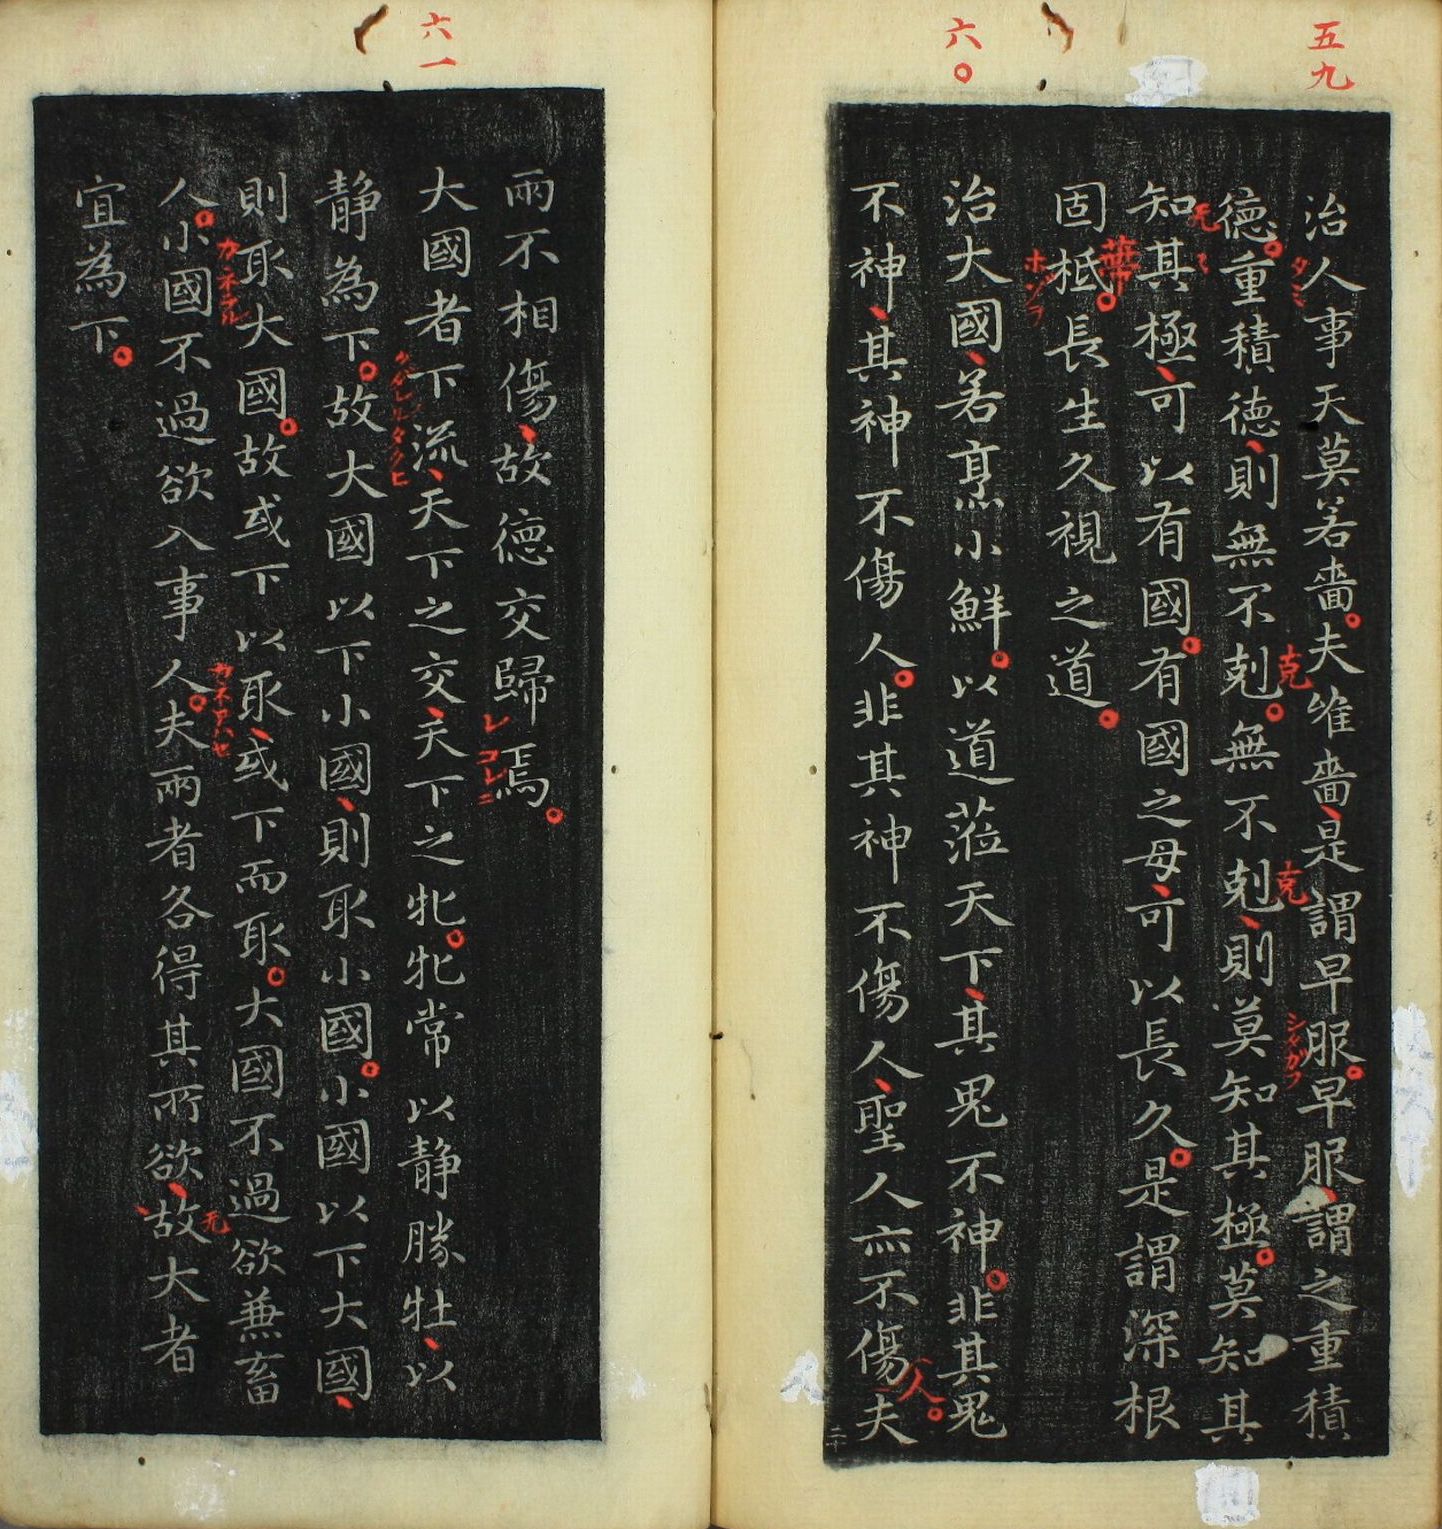 五九
治人事天莫若嗇夫唯嗇是謂早服早服謂之重積
德重積德則無不剋無不剋則莫知其極莫知其
知其極可以有國有國之母可以長久是謂深根
固柢長生久視之道
六〇
治大國若烹小鮮以道蒞天下其鬼不神非其鬼
不神其神不傷人非其神不傷人聖人亦不傷夫
兩不相傷故德交歸焉
六一
大國者下流天下之交天下之牝牝常以靜勝牡以
靜為下故大國以下小國則取小國小國以下大國
則取大國故或下以取或下而取大國不過欲兼畜
人小國不過欲入事人夫兩者各得其所欲故大者
宜為下
タミ
克
克
シタガフ
无
ホゾヲ
人
レコレニ
カネテル
カネアハセ
无
二十